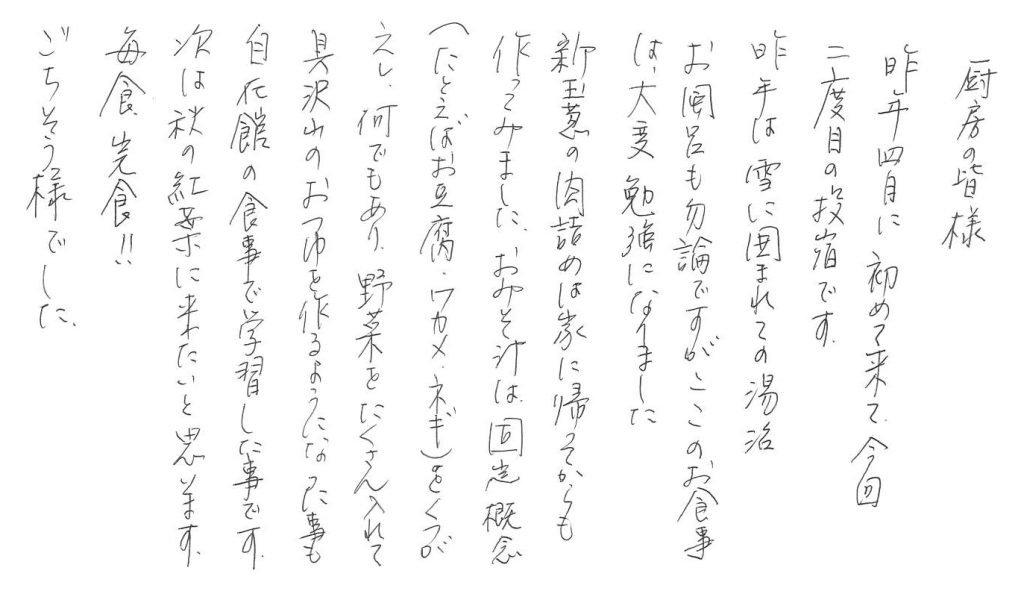 厨房の皆様
昨年四月に初めて来て、今回
二度目の投宿です。
昨年は雪に囲まれての湯治
お風呂も勿論ですが、ここのお食事
は、大変勉強になりました
新玉葱の肉詰めは家に帰ってからも
作ってみました。おみそ汁は、固定概念
(たとえばお豆腐・ワカメ・ネギ)をくつが
えし、何でもあり、野菜をたくさん入れて
具沢山のおつゆを作るようになった事も
自在館の食事で学習した事です。
次は秋の紅葉に来たいと思います。
毎食完食!!
ごちそう様でした。